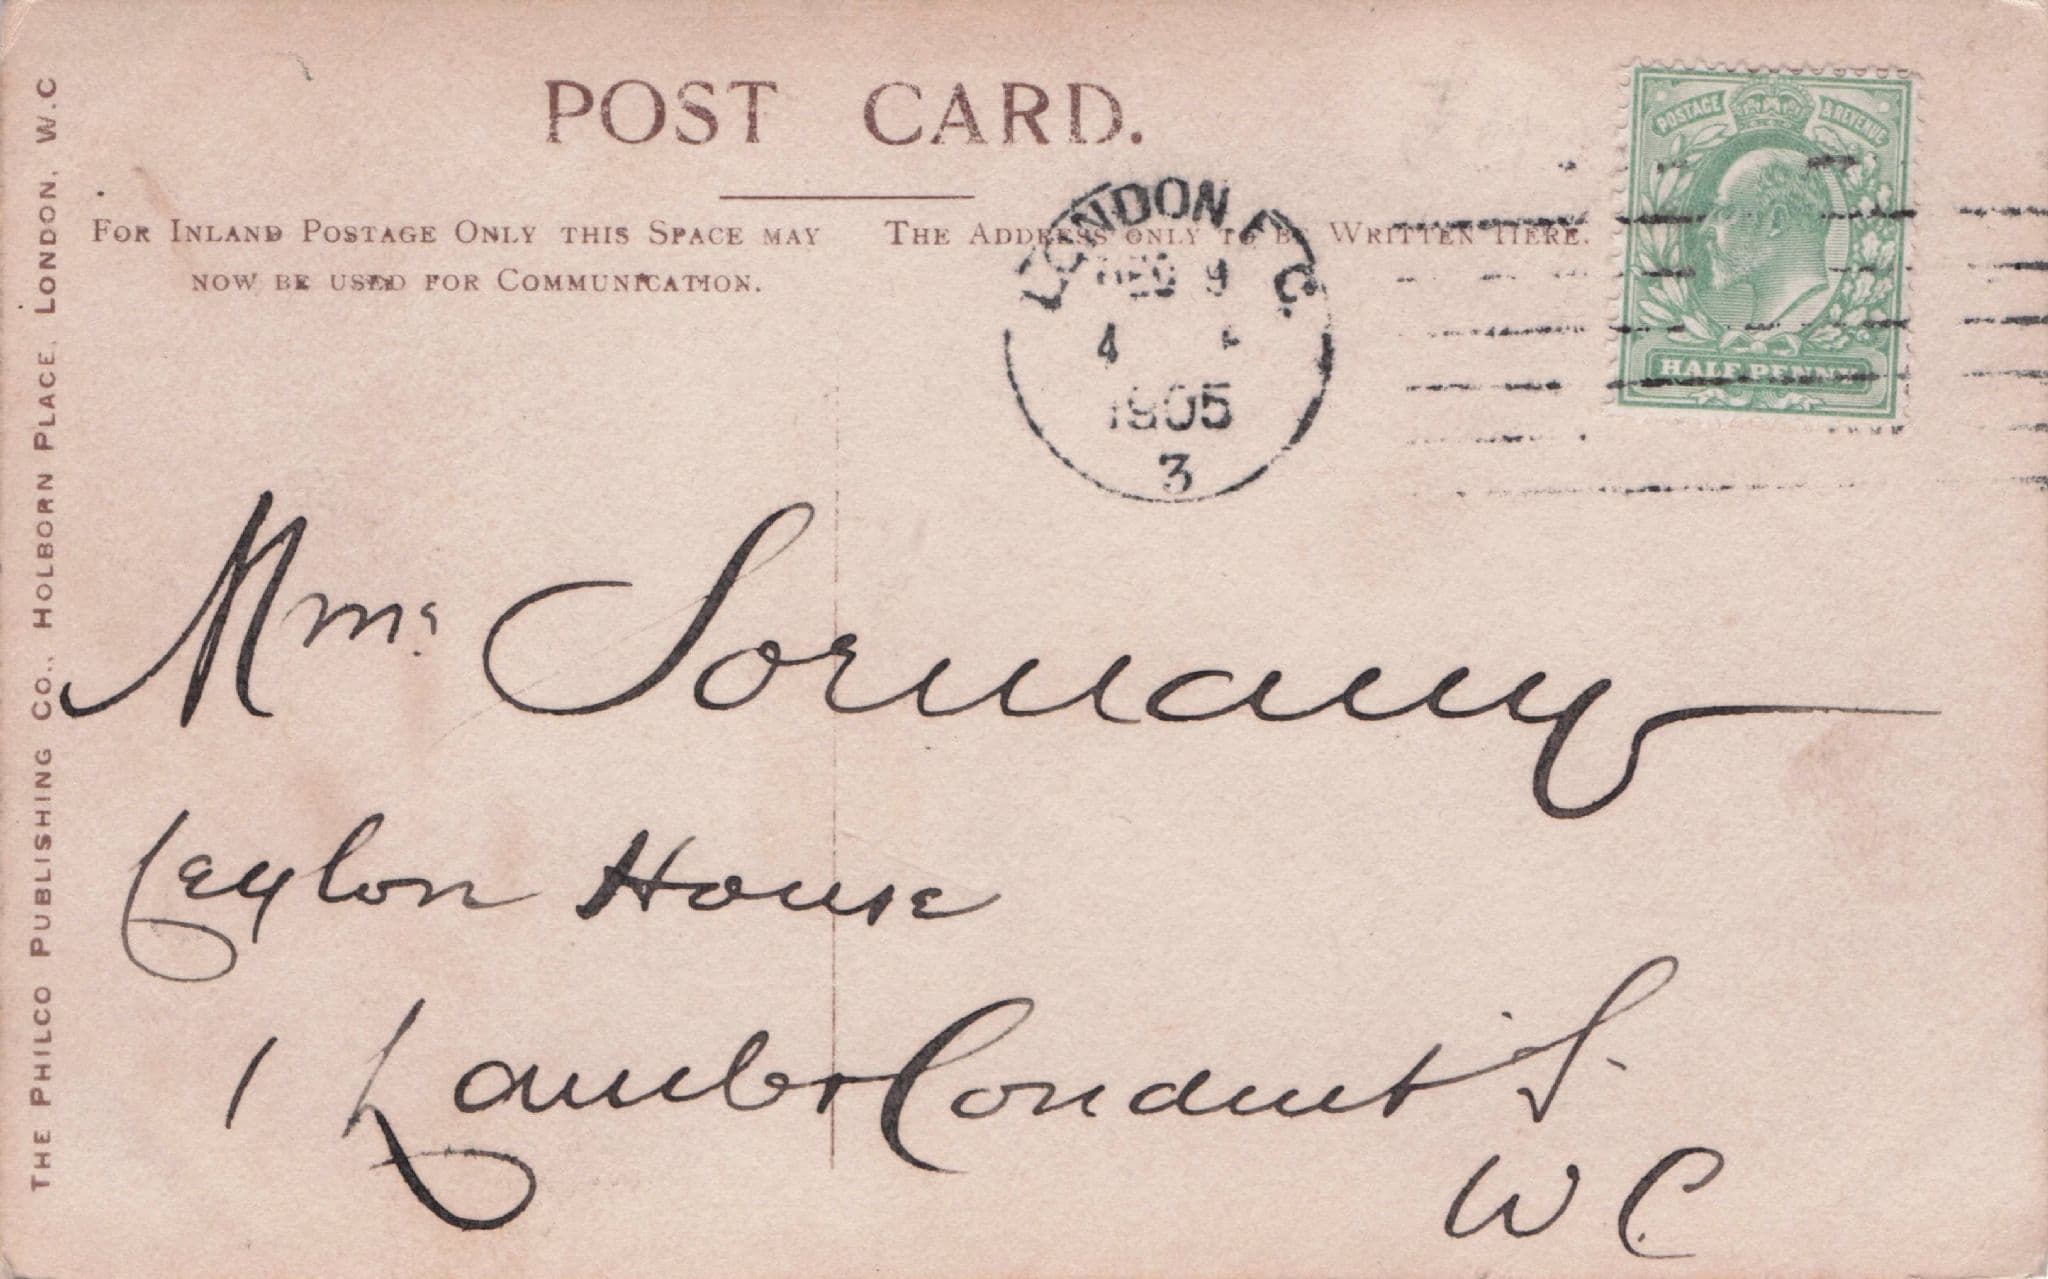 POST CARD.
FOR INLAND POSTAGE ONLY THIS SPACE MAY
NOW BE USED FOR COMMUNICATION.
THE ADDRESS ONLY TO BE WRITTEN HERE.
THE PHILCO PUBLISHING CO., HOLBORN PLACE, LONDON, W.C
LONDON. E.C.
DEC 9
4
1905
3
POSTAGE & REVENUE
HALF PENNY
Mme. Sormany
Ceylon House
1 Lambs Conduit S.
W C